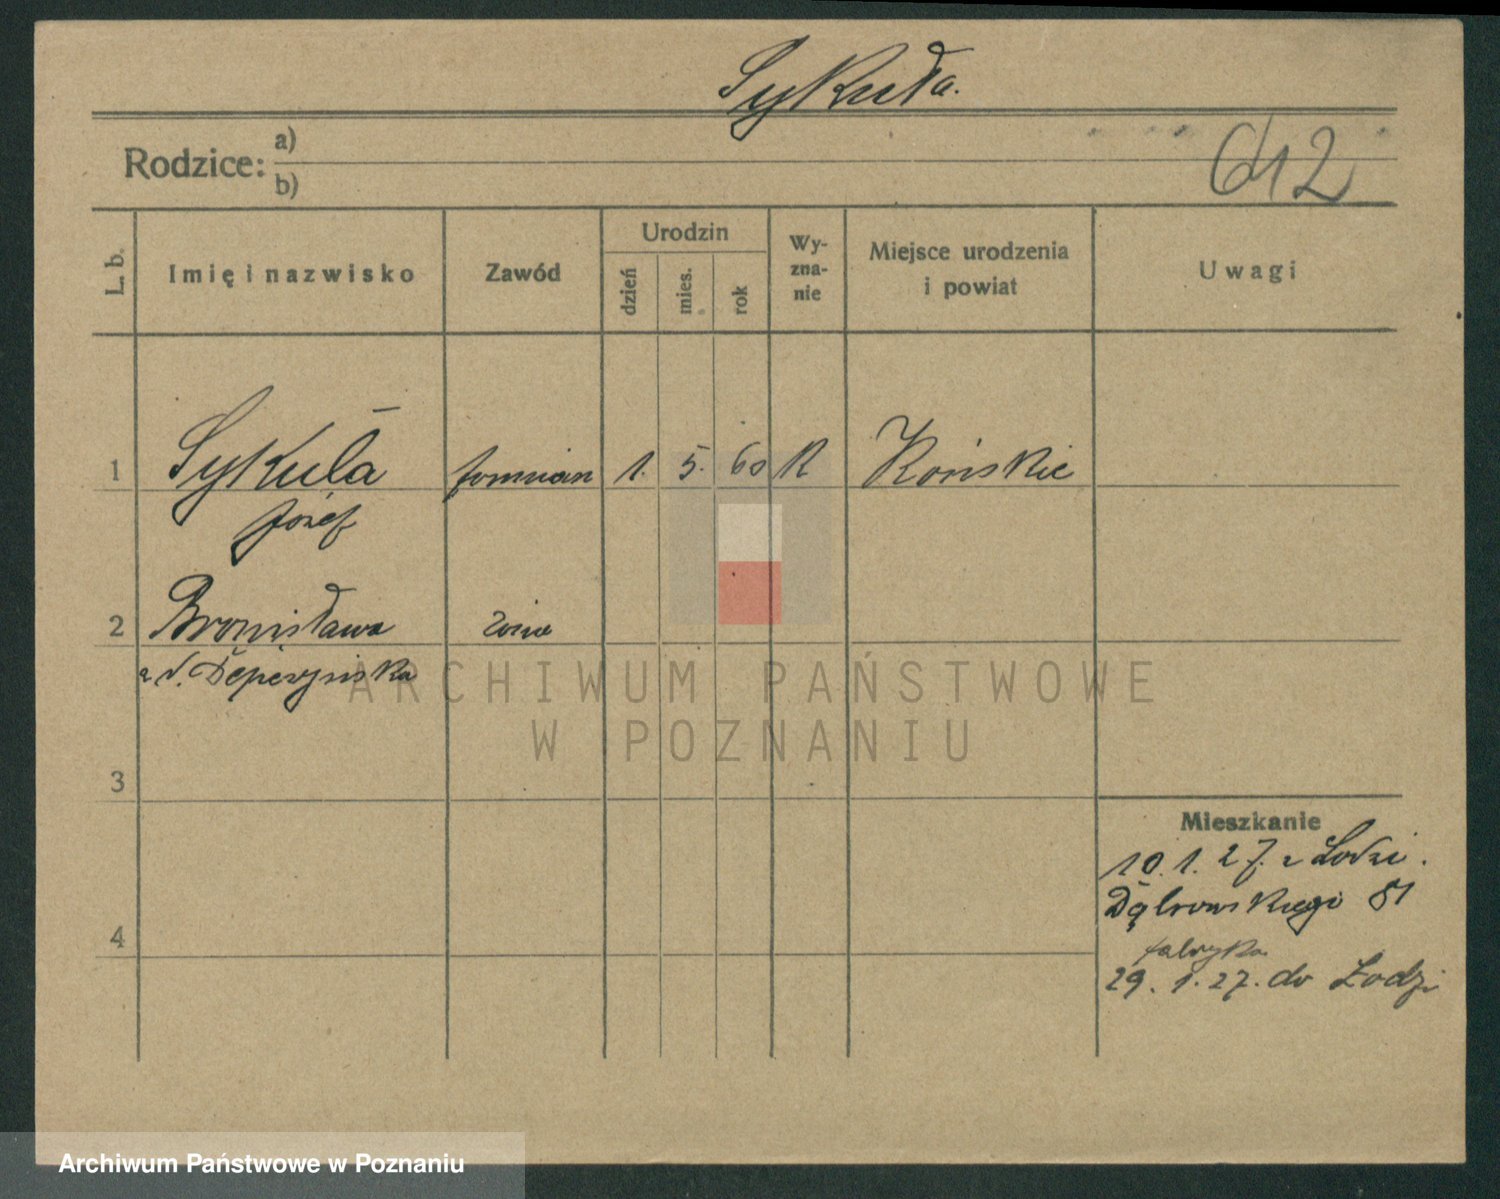 Sykuła.
Rodzice: a)
b)
612
L. b.
Imię i nazwisko
Zawód
Urodzin
dzień
mies.
rok
Wy-
zna-
nie
Miejsce urodzenia
i powiat
Uwagi
1 Sykuła formian 1. 5. 60 R Końskie
Józef
2 Bronisława żona
z d. Depczyńska
3
Mieszkanie
10. 1. 27. z Łodzi.
Dąbrowskiego 81
4
fabryka
29. 1. 27. do Łodzi
ARCHIWUM PAŃSTWOWE
W POZNANIU
Archiwum Państwowe w Poznaniu